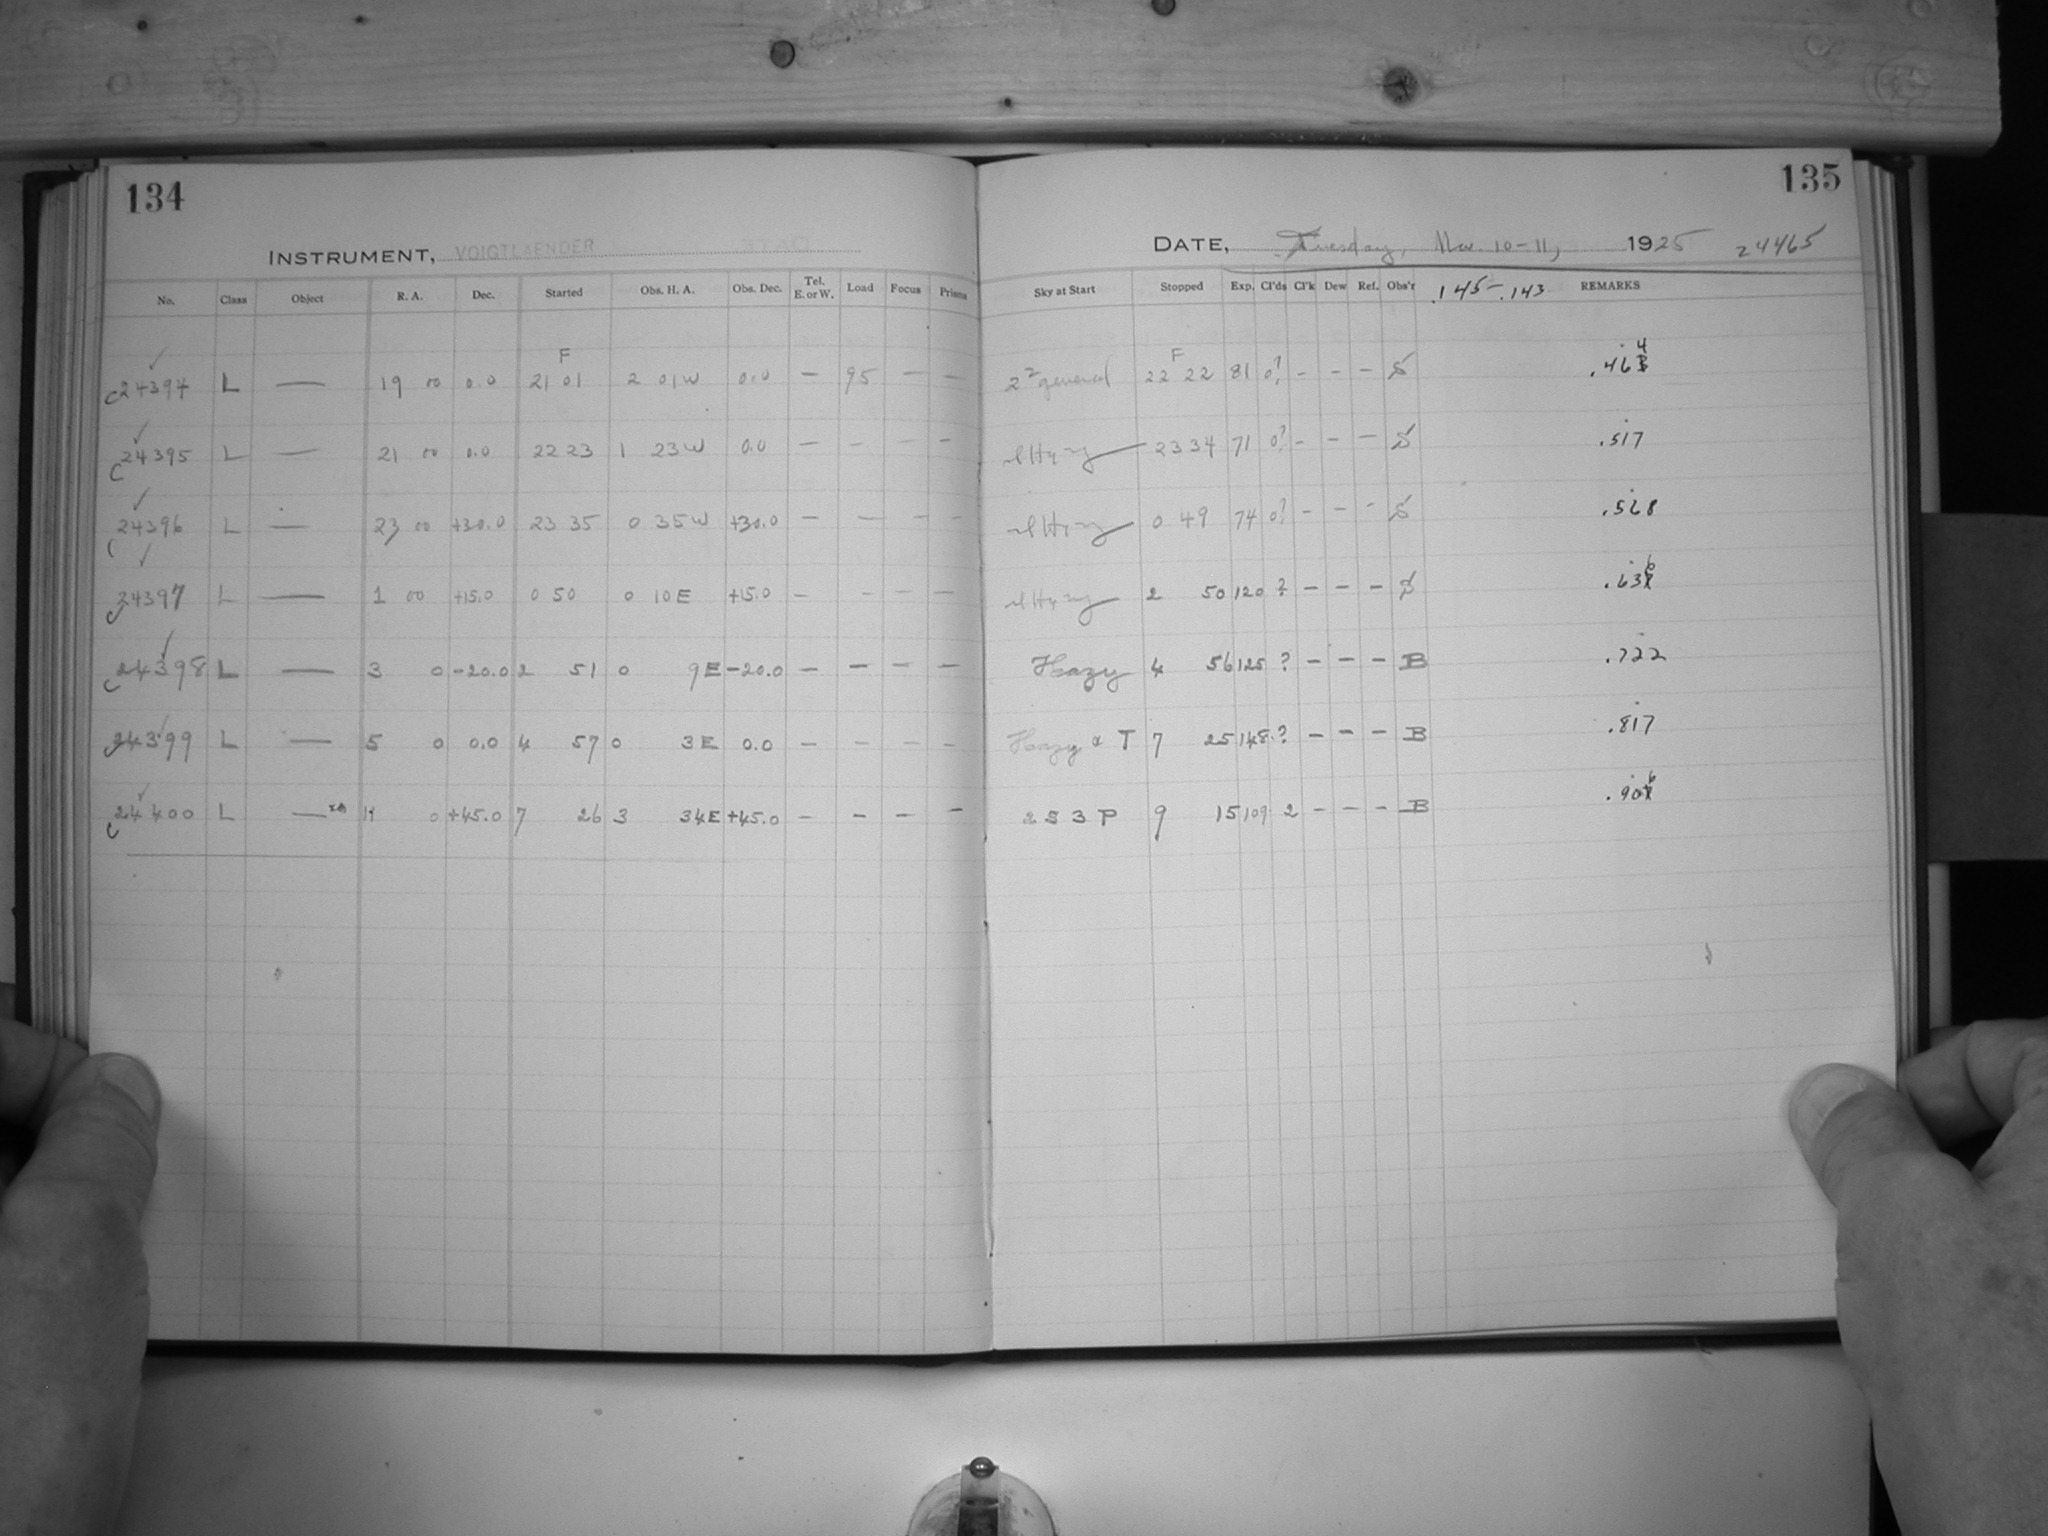 134
INSTRUMENT, VOIGTLAENDER
No. Class Object R. A. Dec. Started Obs. H. A. Obs. Dec. Tel. E. or W. Load Focus Prisms
F
C24394 L — 19 00 0.0 21 01 2 01W 0.0 — 95 — —
C24395 L — 21 00 0.0 22 23 1 23W 0.0 — — — —
C24396 L — 23 00 +30.0 23 35 0 35W +30.0 — — — —
C24397 L — 1 00 +15.0 0 50 0 10E +15.0 — — — —
C24398 L — 3 0 -20.0 2 51 0 9E -20.0 — — — —
C24399 L — 5 0 0.0 4 57 0 3E 0.0 — — — —
C24400 L — 0 +45.0 7 26 3 34E +45.0 — — — —
135
DATE, Tuesday, Nov. 10-11, 1925 24465
Sky at Start Stopped Exp. Cl'ds Cl'k Dew Ref. Obs'r .145-.143 REMARKS
F
2² general 22 22 81 0? - - - S .464
23 34 71 0? - - - S .517
0 49 74 0? - - - S .568
2 50 120 ? - - - S .636
Hazy 4 56 125 ? - - - B .722
Hazy & T 7 25 148 ? - - - B .817
2 S 3 P 9 15 109 2 - - - B .906